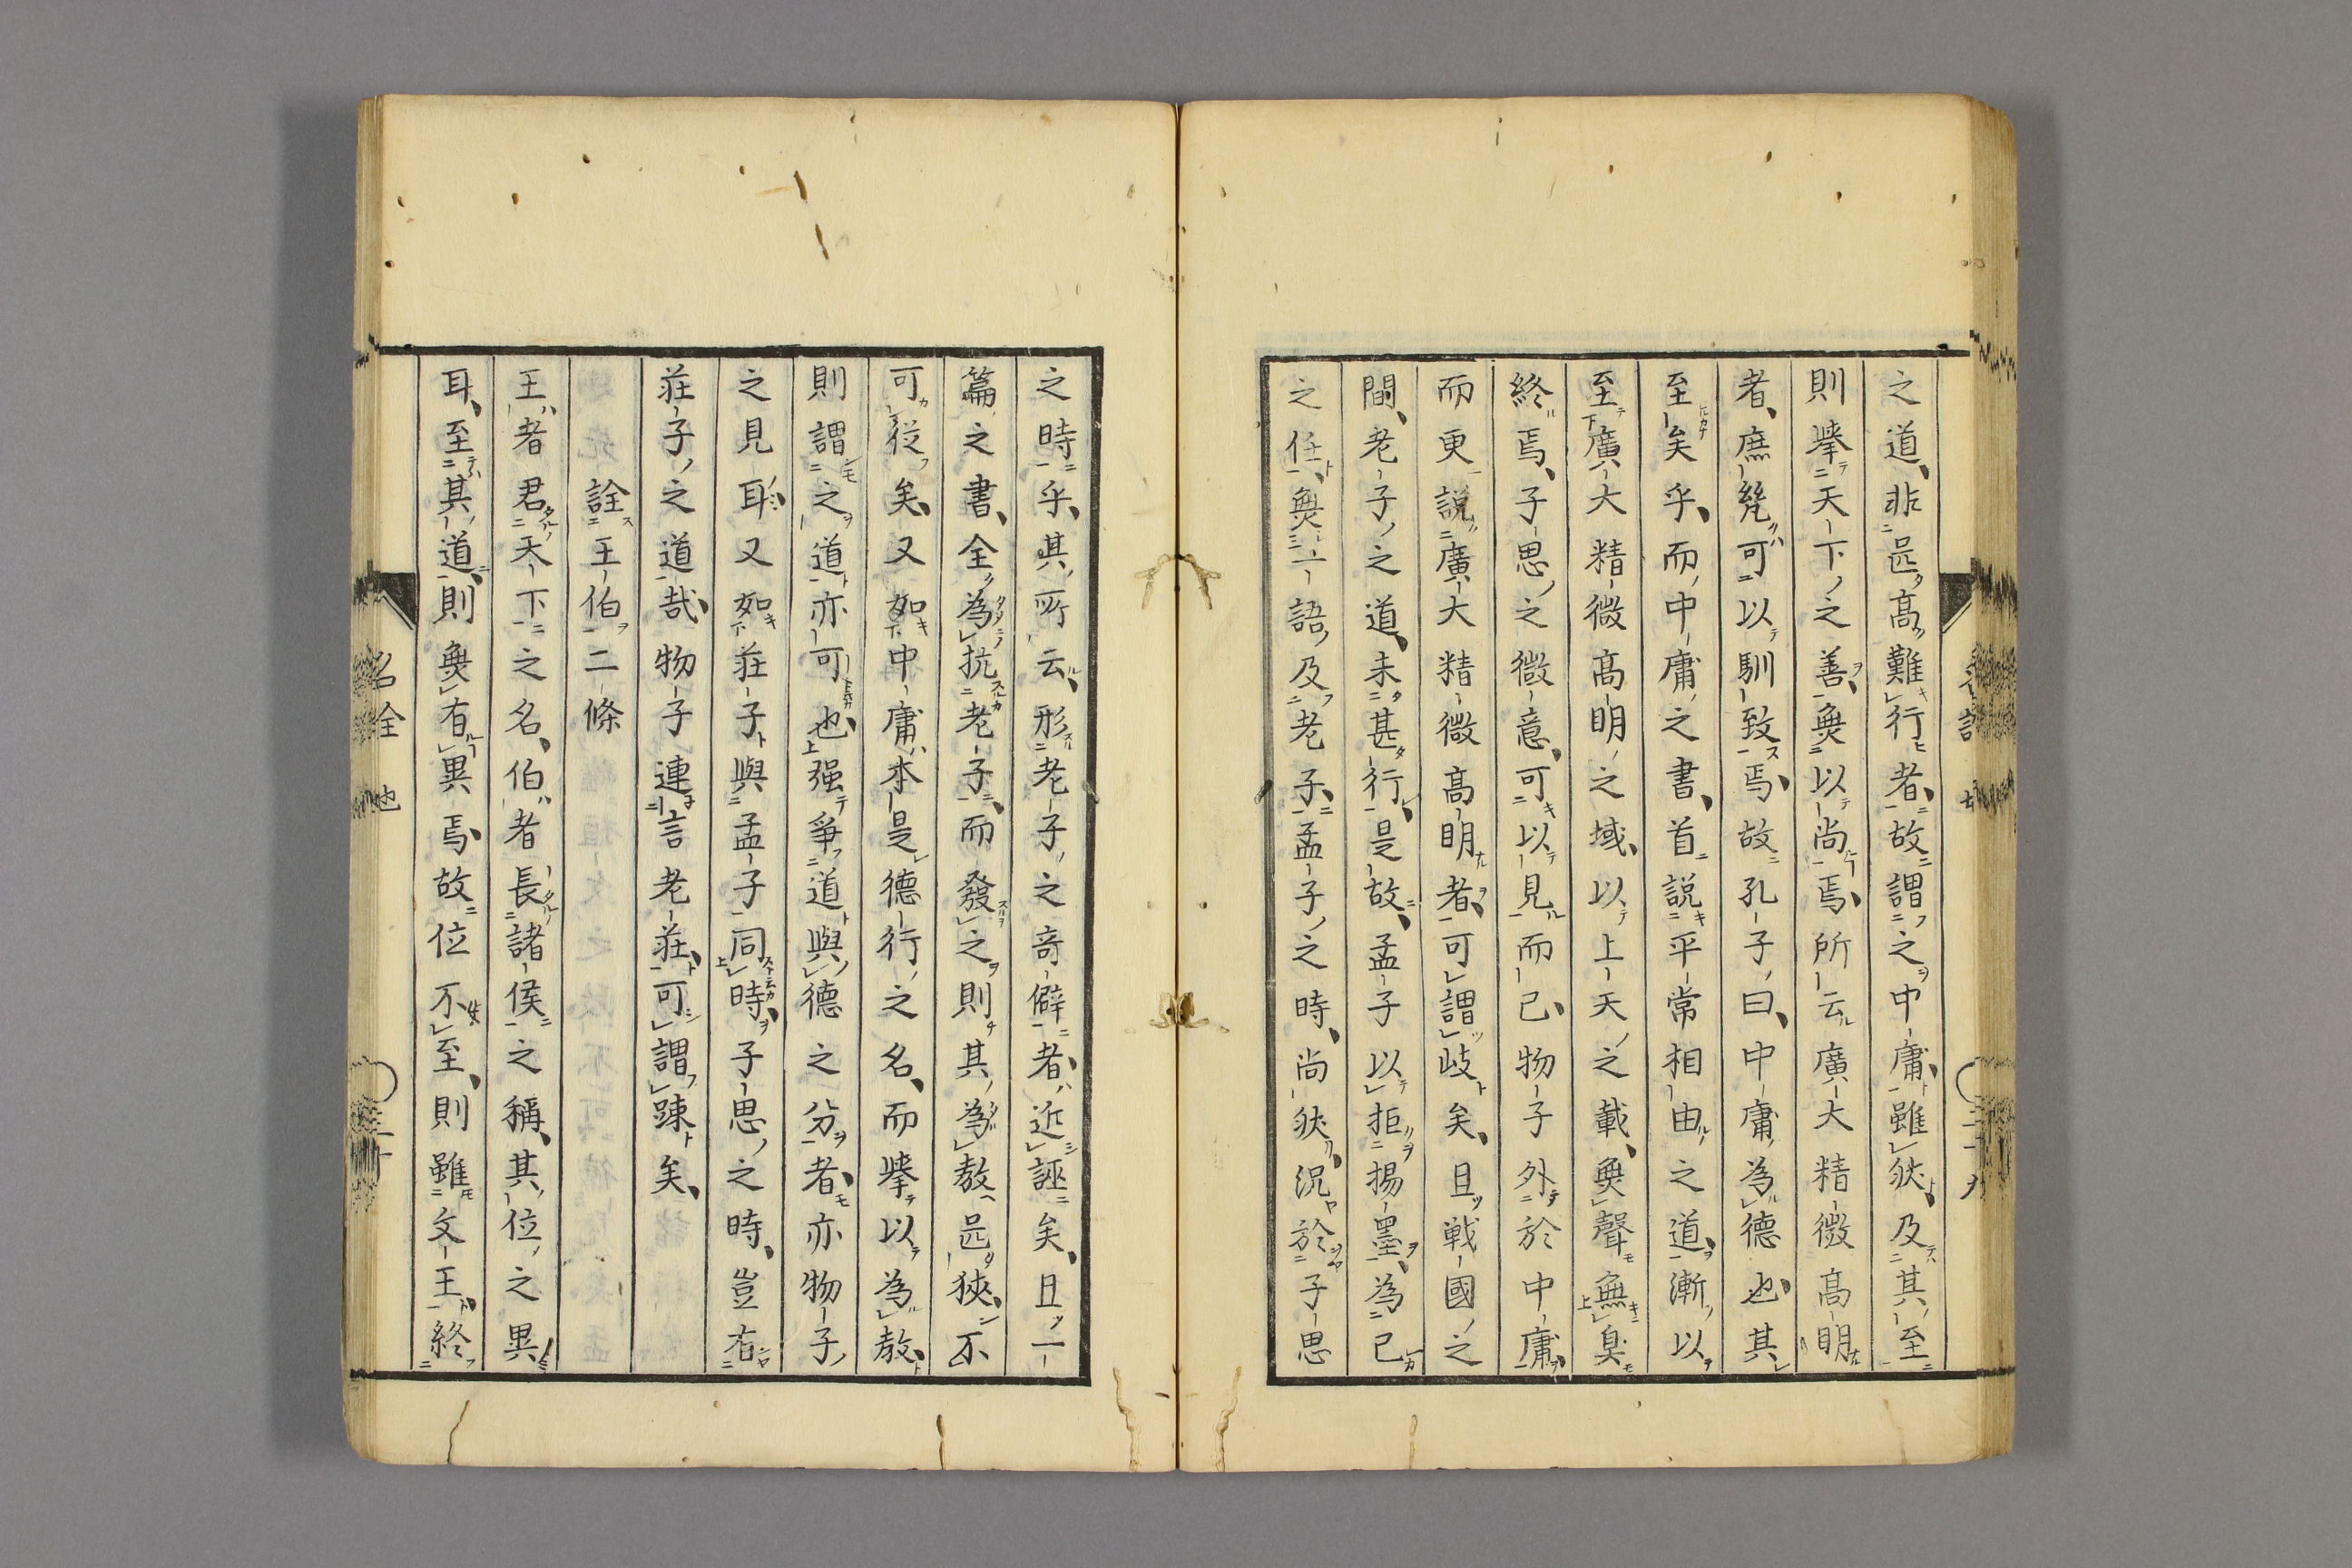 之道、非甚高難行者、故謂之中庸、雖然、及其至
則擧天下之善、無以尚焉、所云廣大精微高明
者、庶幾可以馴致焉、故孔子曰、中庸為德也、其
至矣乎、而中庸之書、首說平常相由之道、漸以
至廣大精微高明之域、以上天之載、無聲無臭
終焉、子思之微意、可以見而已、物子外於中庸
而更說廣大精微高明者、可謂岐矣、且戦國之
間、老子之道、未甚行、是故、孟子以拒揚墨、為己
之任、無一語及老子、孟子之時、尚然、況於子思
之時乎、其所云、形老子之奇僻者、近誣矣、且一
篇之書、全為抗老子、而發之、則其為教甚狹、不
可從矣、又如中庸、本是德行之名、而擧以為教、
則謂之道亦可也、强爭道與德之分者、亦物子
之見耳、又如莊子與孟子同時、子思之時、豈有
莊子之道哉、物子連言老莊、可謂踈矣、
詮王伯二條
王者君天下之名、伯者長諸侯之稱、其位之異
耳、至其道、則無有異焉、故位不至、則雖文王、終
名詮 也